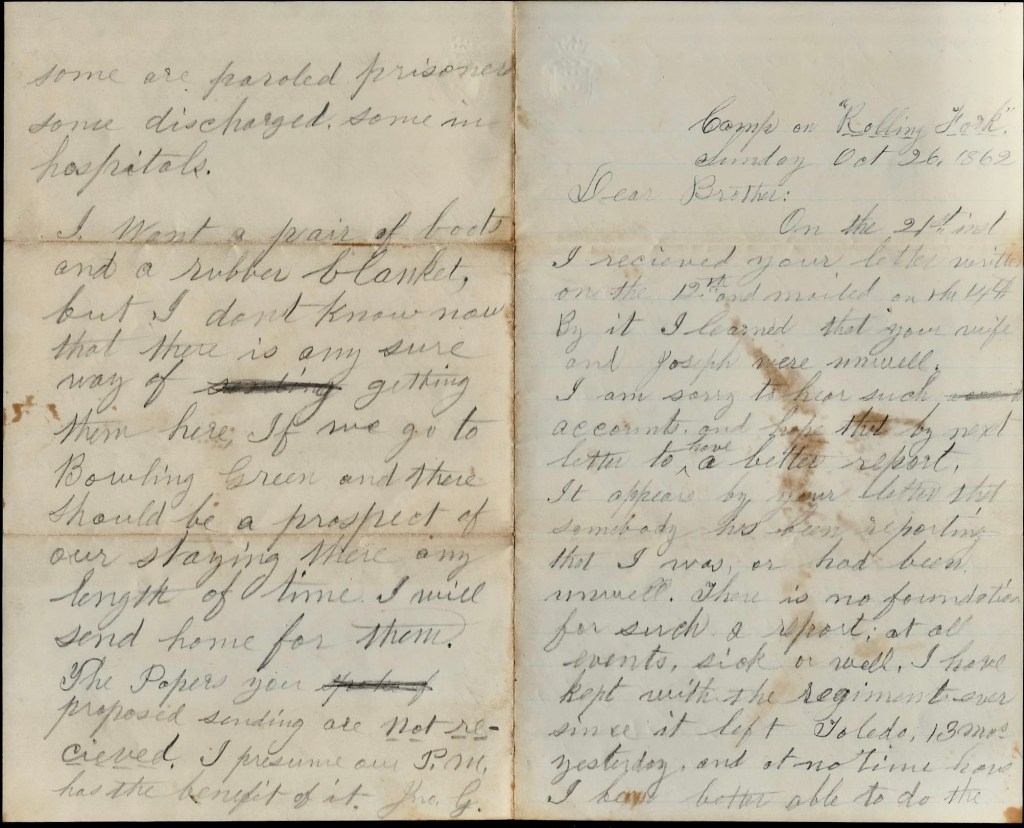 some are paroled prisoners
some discharged. some in
hospitals.
I. Want a pair of boots
and a rubber blanket,
but I dont know now
that there is any sure
way of sending getting
them here. If we go to
Bowling Green and there
should be a prospect of
our staying there any
length of time. I will
send home for them.
The Papers you spoke of
proposed sending are not re-
cieved. I presume our P.M.
has the benefit of it. Jno. G.
Camp on "Rolling Fork".
Sunday Oct 26, 1862
Dear Brother:
On the 21st inst
I recieved your letter written
on the 12th and mailed on the 14th
By it I learned that your wife
and Joseph were unwell.
I am sorry to hear such
accounts. and hope that by next
letter to have a better report.
It appears by your letter that
somebody has been reporting
that I was, or had been,
unwell. There is no foundation
for such a report; at all
events, sick or well, I have
kept with the regiment ever
since it left Toledo, 13 mos
yesterday, and at no time have
I been better able to do the